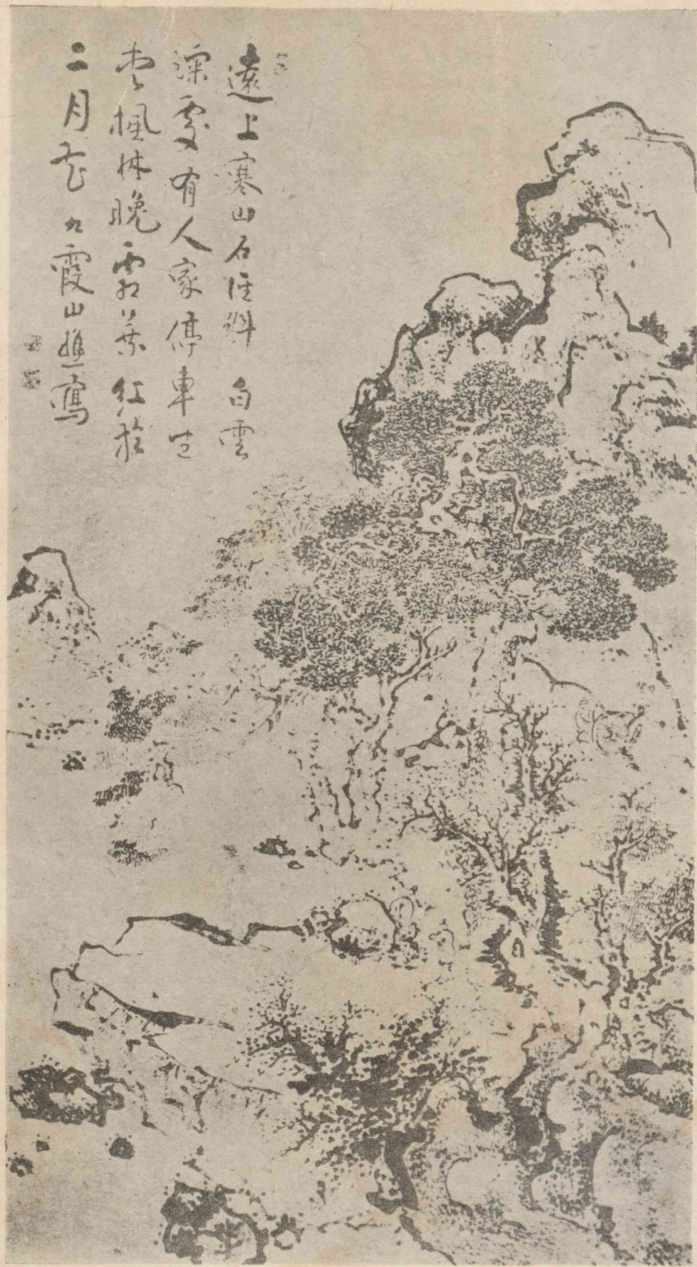 遠上寒山石徑斜 白雲
深處有人家停車坐
愛楓林晚霜葉紅於
二月花 九霞山樵寫